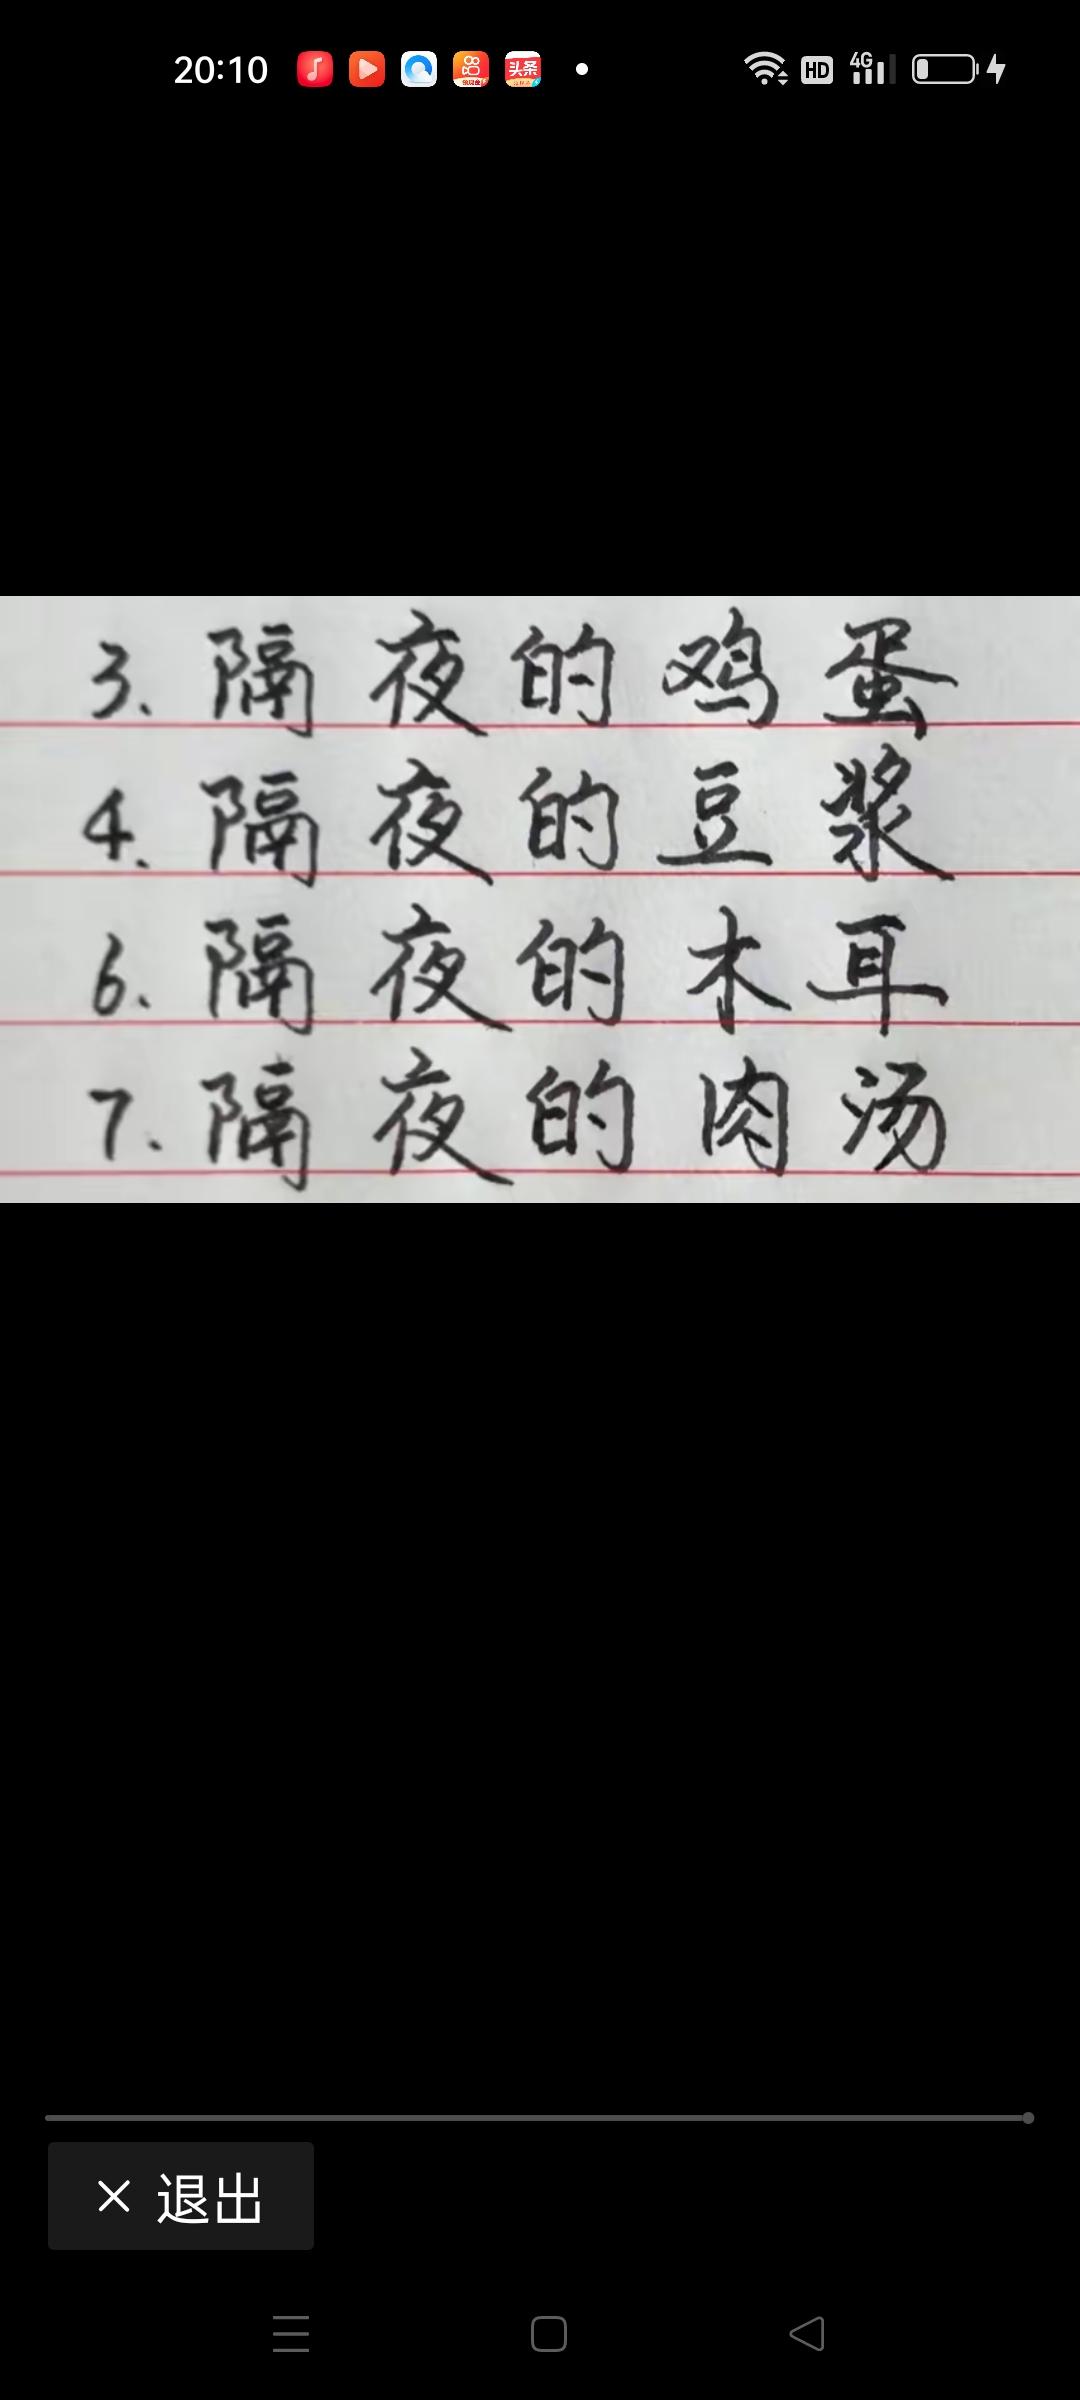 20:10 头条 HD 4G
3. 隔夜的鸡蛋
4. 隔夜的豆浆
6. 隔夜的木耳
7. 隔夜的肉汤
× 退出